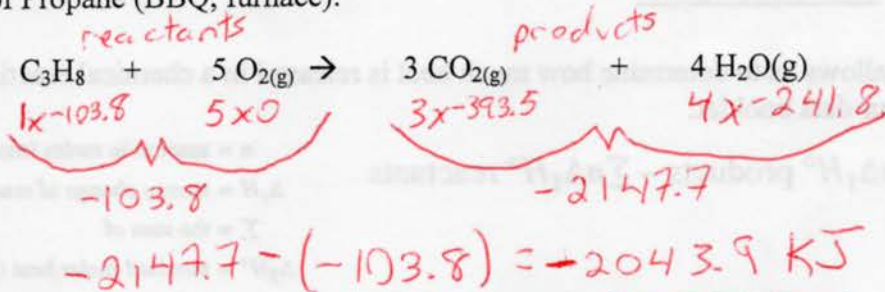 of Propane (BBQ, furnace).
reactants products
C₃H₈ + 5 O₂₍g₎ → 3 CO₂₍g₎ + 4 H₂O(g)
1x-103.8 5x0 3x-393.5 4x-241.8
-103.8 -2147.7
-2147.7 - (-103.8) = -2043.9 KJ